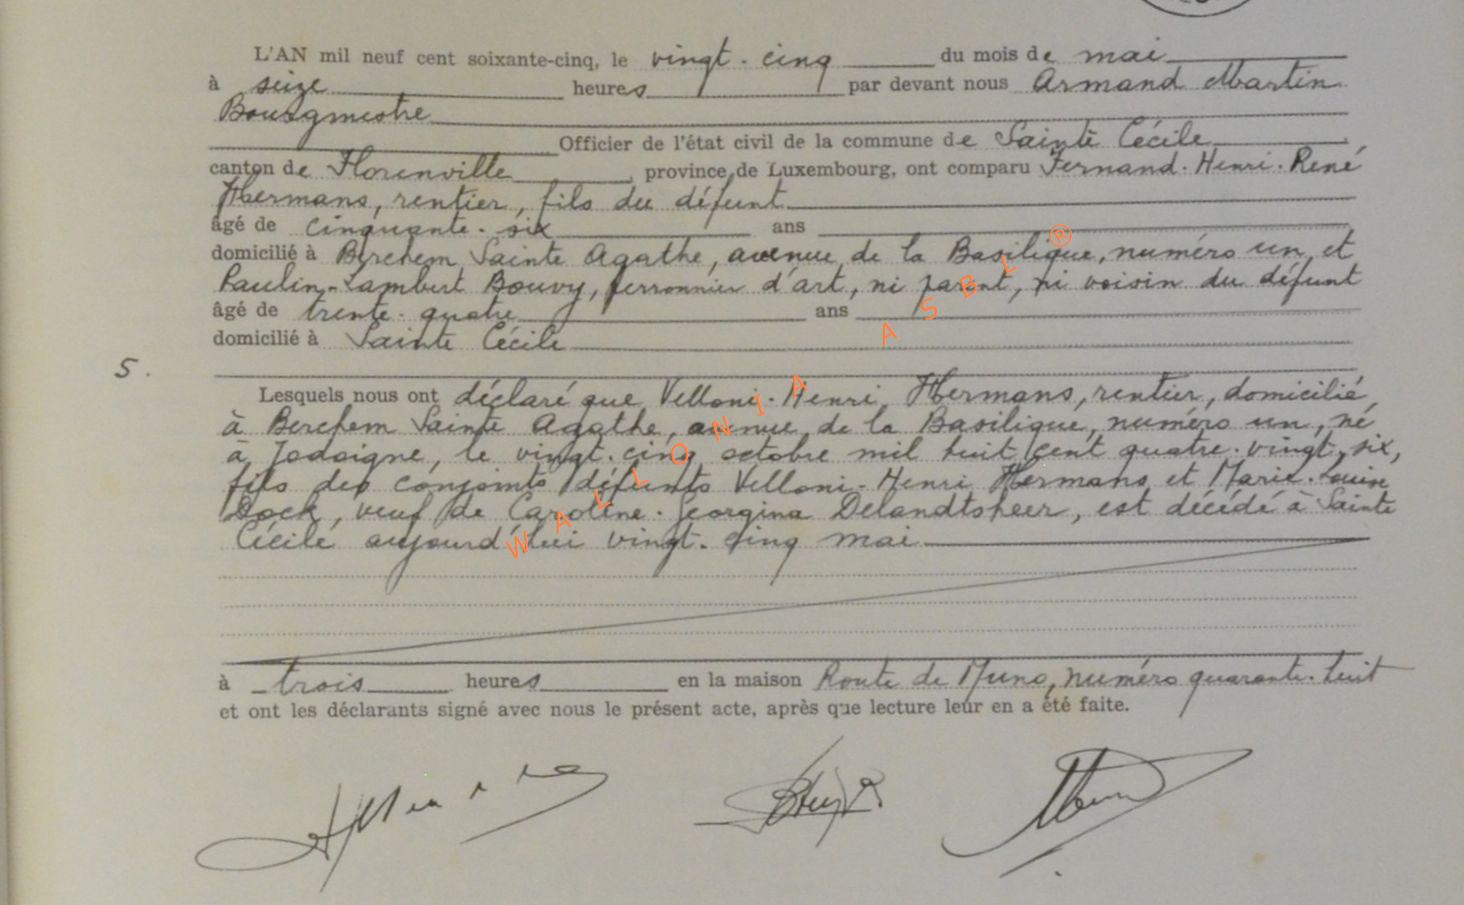 L'AN mil neuf cent soixante-cinq, le vingt-cinq du mois de mai
à seize heures par devant nous Armand Martin
Bourgmestre
Officier de l'état civil de la commune de Sainte Cécile
canton de Florenville, province de Luxembourg, ont comparu Fernand-Henri-René
Hermans, rentier, fils du défunt
âgé de cinquante-six ans
domicilié à Berchem Sainte Agathe, avenue de la Basilique, numéro un, et
Paulin-Lambert Bouvy, ferronnier d'art, ni parent, ni voisin du défunt
âgé de trente-quatre ans
domicilié à Sainte Cécile
5.
Lesquels nous ont déclaré que Velloni-Henri Hermans, rentier, domicilié
à Berchem Sainte Agathe, avenue de la Basilique, numéro un, né
à Jodoigne, le vingt-cinq octobre mil huit cent quatre-vingt-six,
fils des conjoints défunts Velloni-Henri Hermans et Marie-Louise
Dock, veuf de Caroline-Georgina Delandtsheer, est décédé à Sainte
Cécile aujourd'hui vingt-cinq mai
à trois heures en la maison Route de Muno, numéro quarante-huit
et ont les déclarants signé avec nous le présent acte, après que lecture leur en a été faite.
WALLONIA ASBL ®